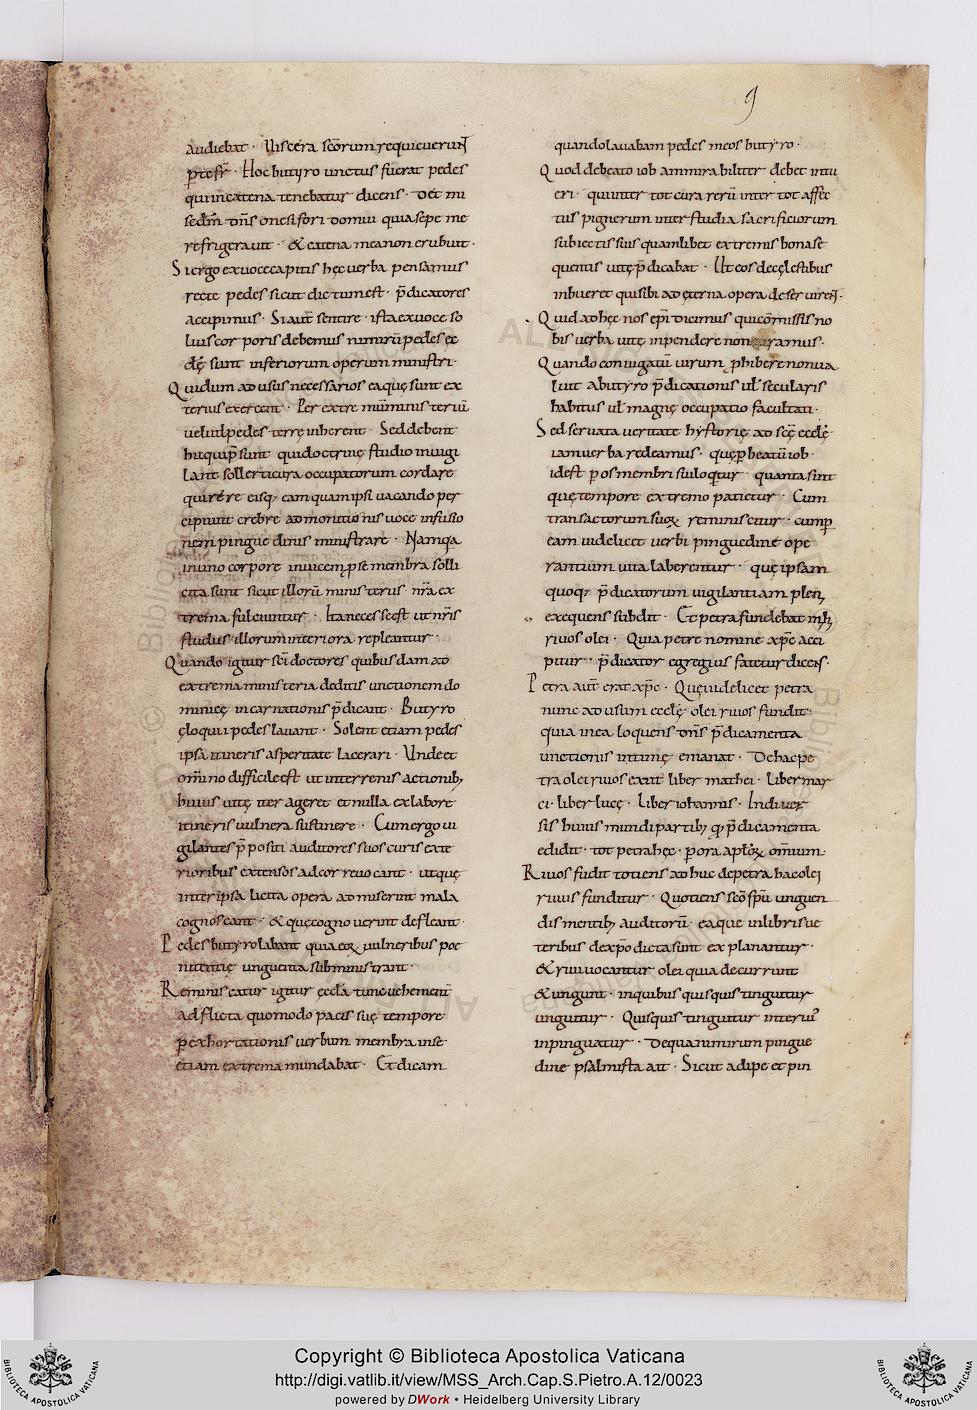 9
audiebat · Viscera scōrum requieuerunt
p te fr̄ · Hoc butyro unctus fuerat pedes
qui incatena tenebatur dicens · Det mi
sedm̄ dn̄s onesifori domui quia sepe me
refrigerauit · & catena mea non erubuit ·
Si ergo ex uoce capitis hęc uerba pensamus
recte pedes sicut dictum est · p̄dicatores
accipimus · Si aut̄ sentire · ista ex uoce so
lius corporis debemus nimirū pedes ec
clę̄ sunt inferiorum operum ministri ·
Qui dum ad usus necessarios ea quę sunt ex
terius exercent · Per extremū ministeriū
uelud pedes terrę inherent · Sed debent
hi qui p̄sunt qui doctrinę studio inuigi
lant sollerti cura occupatorum corda re
quirere eisq; eam quam ipsi uacando per
cipiunt crebre admonitionis uoce infusio
nem pinguedinis ministrare · Nam qa
in uno corpore inuicem p se membra solli
cita sunt sicut illorū ministeriis nr̄a ex
trema fulciuntur · Ita necesse est ut nr̄is
studiis illorum interiora repleantur ·
Quando igitur sc̄i doctores quibusdam ad
extrema ministeria deditis unctionem do
minicę incarnationis p̄dicant · Butyro
ęloquii pedes lauant · Solent etiam pedes
ipsa itineris asperitate lacerari · Unde et
om̄ino difficile est ut in terrenis actionib;
huius uitę iter ageret et nulla ex labore
itineris uulnera sustinere · Cum ergo ui
gilantes p̄positi auditores suos curis exte
rioribus extensos ad cor reuocant · ut quę
inter ipsa licita opera admiserint mala
cognoscant · & quę cognouerint defleant ·
Pedes butyro labant quia eoꝝ uulneribus poe
nitentię unguenta subministrant ·
Reminiscatur igitur ęcclā tunc uehement̄
adflicta quomodo pacis suę tempore
p exhortationis uerbum membra in se
etiam extrema mundabat · Et dicam
quando lauabam pedes meos butyro ·
Quod de beato iob ammirabiliter debet intu
eri · qui inter tot cura rerū inter tot affec
tus pignerum inter studia sacrificiorum
subiectis suis quamlibet extremis bona se
quentis uitę p̄dicabat · Ut eos de cęlestibus
inbueret qui sibi ad ęterna opera deseruirent ·
Quid ad hęc nos ep̄i dicimus qui cōmissis no
bis uerba uitę inpendere non curamus ·
Quando coniugatū uirum phibere non ua
luit a butyro p̄dicationis uł secularis
habitus uł magnę occupatio facultati ·
Sed seruata ueritate hystorię ad sc̄ę ecclę̄
iam uerba redeamus · quę p beatū iob ·
id est p os membri sui loq̄tur · quanta sint
quę tempore extremo patietur · Cum
transactorum suoꝝ reminiscitur · cum p
eam uidelicet uerbi pinguedinē ope
rantium uita laberentur · quę ipsam
quoq; p̄dicatorum uigilantiam plen;
exequens subdit · Et petra fundebat mh̄
riuos olei · Quia petre nomine xp̄c acci
pitur · p̄dicator egregius fatetur dicens ·
Petra aut̄ erat xp̄c · Quę uidelicet petra
nunc ad usum ecclę̄ olei riuos fundit ·
quia in ea loquens dn̄s p̄dicamenta
unctionis intimę emanat · De hac pe
tra olei riuos exiit liber mathei · liber mar
ci · liber lucę · Liber iohannis · In diuer
sis huius mundi partib; q̄; p̄dicamenta
edidit · tot petra hęc · p ora ap̄loꝝ omnium ·
Riuos fudit totiens adhuc de petra hac olei
riuus funditur · Quotiens scō sp̄u unguen
dis mentib; auditorū · ea que in libris ue
teribus de xp̄o dicta sunt explanantur ·
& riui uocantur olei quia decurrunt
& ungunt · in quibus quisquis tinguitur
unguitur · Quisquis tinguitur interius
inpinguatur · De qua nimirum pingue
dine psalmista ait · Sicut adipe et pin
Copyright © Biblioteca Apostolica Vaticana
http://digi.vatlib.it/view/MSS_Arch.Cap.S.Pietro.A.12/0023
powered by DWork • Heidelberg University Library
BIBLIOTECA APOSTOLICA VATICANA
BIBLIOTECA APOSTOLICA VATICANA